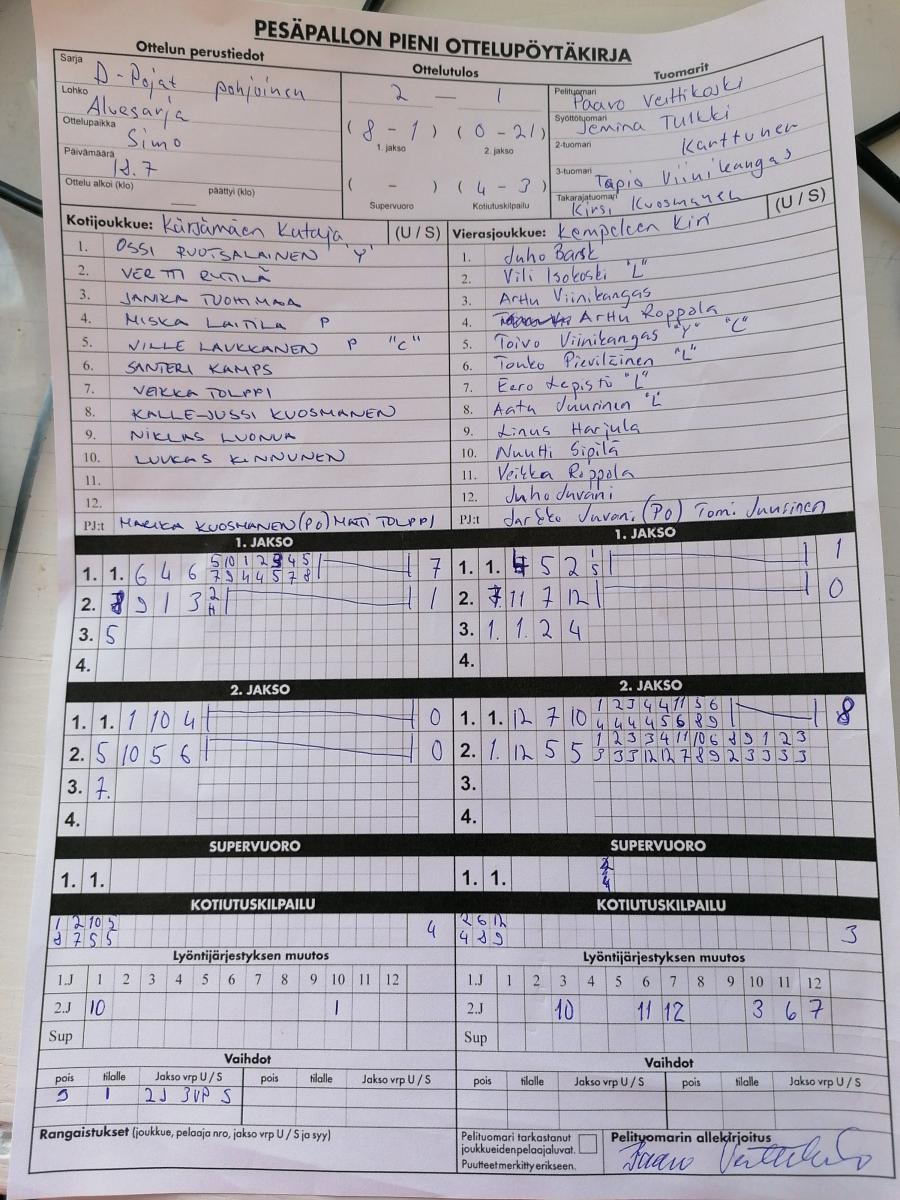 PESÄPALLON PIENI OTTELUPÖYTÄKIRJA
Ottelun perustiedot
Sarja D-Pojat pohjoinen
Lohko Aluesarja
Ottelupaikka Simo
Päivämäärä 18.7
Ottelu alkoi (klo) päättyi (klo)
Ottelutulos
2 — 1
(8 - 1) (0 - 21)
1. jakso 2. jakso
( - ) (4 - 3)
Supervuoro Kotiutuskilpailu
Tuomarit
Pelituomari Paavo Veittikoski
Syöttötuomari Jemina Tulkki
2-tuomari Karttunen
3-tuomari Tapio Viinikangas
Takarajatuomari Kirsi Kuosmanen
Kotijoukkue: Kärsämäen Kataja (U / S)
1. OSSI RUOTSALAINEN "Y"
2. VERTTI RYTILÄ
3. JANIKA TUOHIMAA
4. MISKA LAITILA P
5. VILLE LAUKKANEN P "C"
6. SANTERI KAMPS
7. VEIKKA TOLPPI
8. KALLE-JUSSI KUOSMANEN
9. NIKLAS LUONUA
10. LUUKAS KINNUNEN
11.
12.
PJ:t MARIKA KUOSMANEN (PO) MATI TOLPPI
Vierasjoukkue: Kempeleen Kiri (U / S)
1. Juho Barsk
2. Vili Isokoski "L"
3. Arttu Viinikangas
4. Arttu Roppola
5. Toivo Viinikangas "Y" "C"
6. Touko Pieviläinen "L"
7. Eero Lepistö "L"
8. Aatu Juurinen "L"
9. Linus Harjula
10. Nuutti Sipilä
11. Veikka Roppola
12. Juho Juvani
PJ:t Jarkko Juvani (PO) Tomi Juurinen
1. JAKSO
1. 1. 6 4 6 5 10 1 2 3 4 5 7
7 9 4 4 5 7 8
2. 8 9 1 3 2 1
3. 5
4.
1. JAKSO
1. 1. 4 5 2 1 1
5
2. 7 11 7 12 0
3. 1. 1. 2 4
4.
2. JAKSO
1. 1. 1 10 4 0
2. 5 10 5 6 0
3. 7.
4.
2. JAKSO
1. 1. 12 7 10 1 2 3 4 4 11 5 6 8
4 4 4 4 5 6 8 9
2. 1. 12 5 5 1 2 3 3 4 11 10 6 8 9 1 2 3
3 3 3 12 12 7 8 9 2 3 3 3 3
3.
4.
SUPERVUORO
1. 1.
SUPERVUORO
1. 1.
KOTIUTUSKILPAILU
1 2 10 2 4
8 7 5 5
KOTIUTUSKILPAILU
2 6 12 3
4 8 9
Lyöntijärjestyksen muutos
1.J 1 2 3 4 5 6 7 8 9 10 11 12
2.J 10 1
Sup
Lyöntijärjestyksen muutos
1.J 1 2 3 4 5 6 7 8 9 10 11 12
2.J 10 11 12 3 6 7
Sup
Vaihdot
pois tilalle Jakso vrp U / S pois tilalle Jakso vrp U / S
9 1 2J 3VP S
Vaihdot
pois tilalle Jakso vrp U / S pois tilalle Jakso vrp U / S
Rangaistukset (joukkue, pelaaja nro, jakso vrp U / S ja syy)
Pelituomari tarkastanut
joukkueidenpelaajaluvat.
Puutteet merkitty erikseen.
Pelituomarin allekirjoitus
Paavo Veittikoski